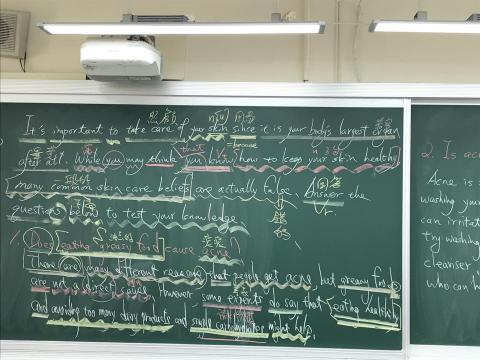 照顧 n(皮膚) 因為
It's important to take care of your skin since it is your body's largest organ
=because
after all. While you may think that you know how to keep your skin healthy,
many common skin care beliefs are actually false. Answer the
questions below to test your knowledge.
錯的
1. Does eating greasy food cause acne
There are many different reasons that people get acne, but greasy foods
are not a direct cause. However some experts do say that eating healthily
and avoiding too many dairy products and simple carbohydrates might help.
2. Is ac
Acne is
washing your
can irrita
Try washing
cleanser
who can h